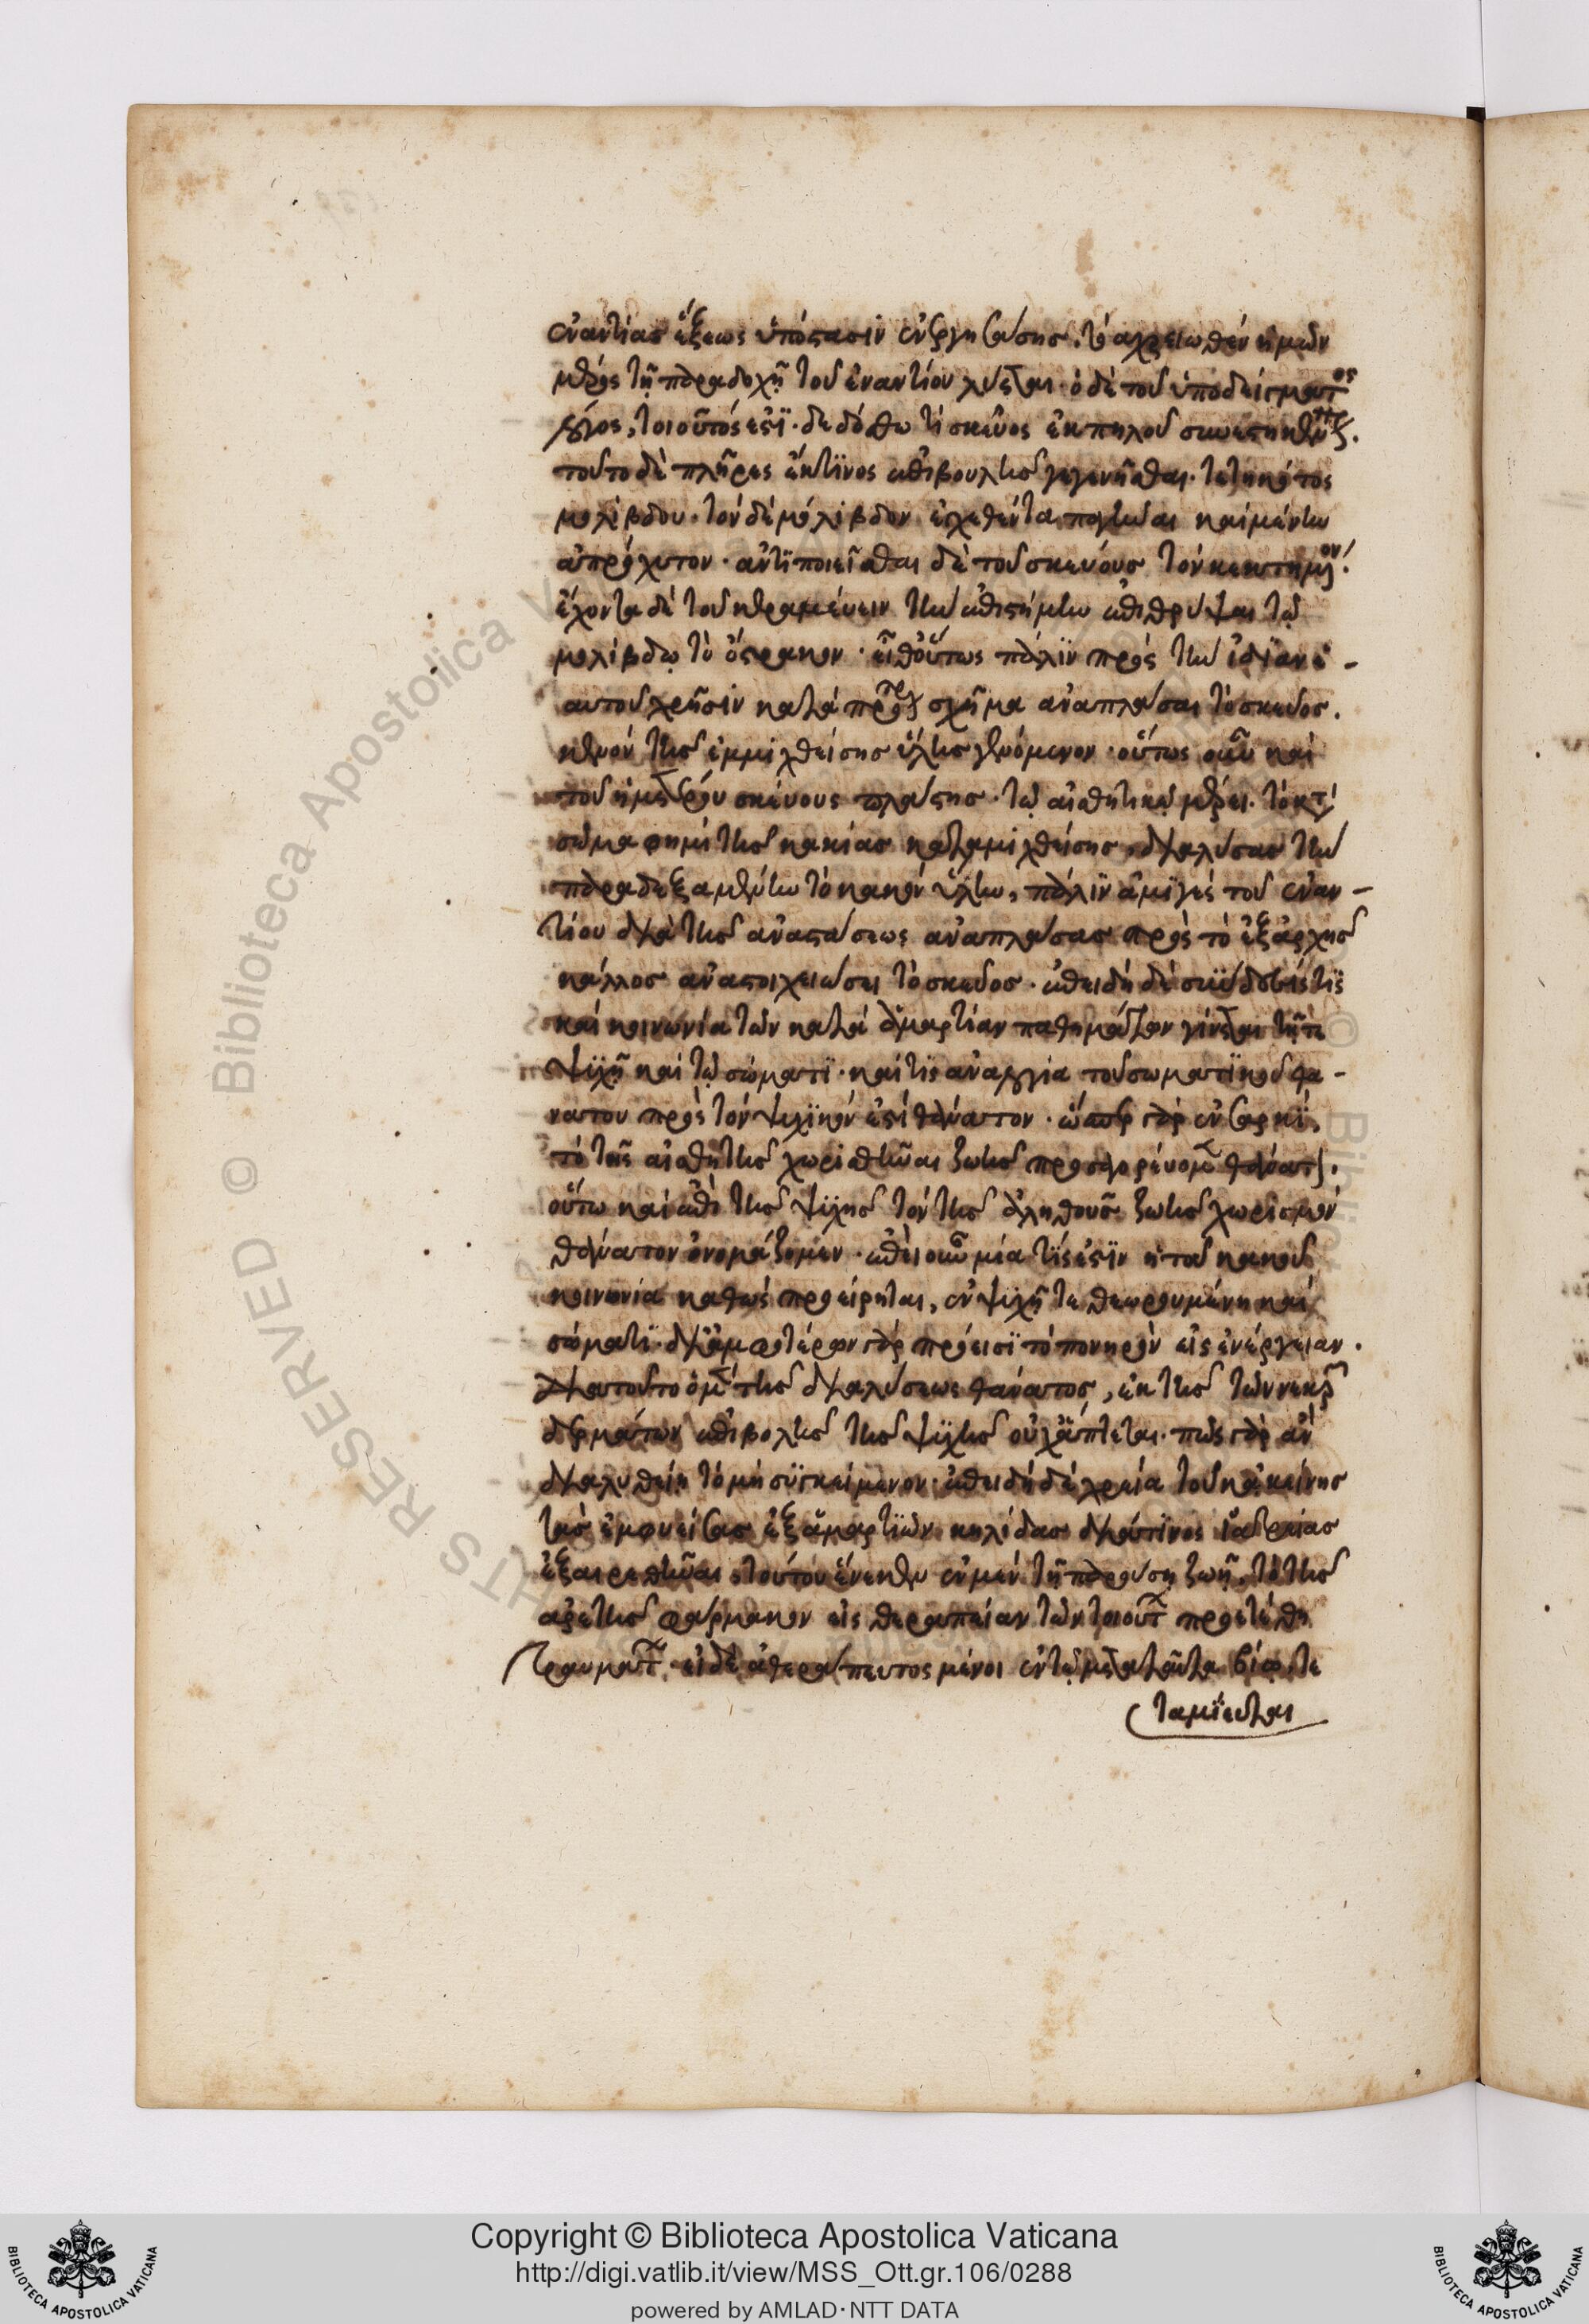 ἐναντίας ἕξεως ὑπόστασιν ἐνεργησάσης, τὸ ἀχρειωθὲν ἡμῶν
μέρος τῇ παραδοχῇ τοῦ ἐναντίου λύεται· ὁ δὲ τοῦ ὑποδείγματος
λόγος, τοιοῦτός ἐστϊ· δεδόσθω τὶ σκεῦος ἐκ πηλοῦ
τοῦτο δὲ πλῆρες ἔκ τϊνος ἐπιβουλῆς γεγενῆσθαι τετηκότος
μολίβδου· τὸν δὲ μόλιβδον ἐγχεθέντα παγῆναι καὶ μένειν
ἀπρόχυτον· ἀντϊποιεῖσθαι δὲ τοῦ σκεύους τὸν κεκτημένον
ἔχοντα δὲ τοῦ κεραμεύειν τὴν ἐπιστήμην περιθρύψαι τῷ
μολίβδῳ τὸ ὄστρακον· εἶθ' οὕτως πάλϊν πρὸς τὴν ἰδίαν ἑ-
αυτοῦ χρῆσιν κατὰ τὸ πρότερον σχῆμα ἀναπλάσαι τὸ σκεῦος.
κενὸν τῆς ἐμμιχθείσης ὕλης γενόμενον· οὕτως οὖν καὶ
τοῦ ἡμετέρου σκεύους πλάστης· τῷ αἰσθητικῷ μέρει. τὸ κατὰ
σῶμα φημὶ τῆς κακίας καταμιχθείσης, διαλύσας τὴν
παραδεξαμένην τὸ κακὸν ὕλην, πάλϊν ἀμϊγὲς τοῦ ἐναν-
τίου διὰ τῆς ἀναστάσεως ἀναπλάσας πρὸς τὸ ἐξ ἀρχῆς
κάλλος ἀναστοιχειώσει τὸ σκεῦος· ἐπειδὴ δὲ σύνδεσίς τϊς
καὶ κοινωνία τῶν κατὰ ἁμαρτίαν παθημάτων γίνεται τῇ τε
ψϋχῇ καὶ τῷ σώματϊ· καί τϊς ἀναλογία τοῦ σωματϊκοῦ θα-
νάτου πρὸς τὸν ψυχϊκόν ἐστὶ θάνατον· ὥσπερ γὰρ ἐν σαρκὶ,
τὸ τῆς αἰσθητῆς χωρισθῆναι ζωῆς προσαγορεύομεν θάνατον·
οὕτω καὶ ἐπὶ τῆς ψυχῆς τὸν τῆς ἀληθοῦς ζωῆς χωρισμὸν
θάνατον ὀνομάζομεν· ἐπεὶ οὖν μία τίς ἐστϊν ἡ τοῦ κακοῦ
κοινωνία καθὼς προείρηται, ἐν ψυχῇ τε θεωρουμένη καὶ
σώματϊ· δι' ἀμφοτέρων γὰρ πρόεισϊ τὸ πονηρὸν εἰς ἐνέργειαν·
διὰ τοῦτο ὁ μὲν τῆς διαλύσεως θάνατος, ἐκ τῆς τῶν νεκρῶν
δερμάτων ἐπιβολῆς τῆς ψυχῆς οὐχ ἅπτεται· πῶς γὰρ ἂν
διαλυθείη τὸ μὴ συγκείμενον· ἐπειδὴ δὲ χρεία τοῦ κἀκείνης
τὰς ἐμφυείσας ἐξ ἁμαρτϊῶν κηλίδας διά τϊνος ἰατρείας
ἐξαιρεθῆναι, τούτου ἕνεκεν ἐν μὲν τῇ παρούσῃ ζωῇ, τὸ τῆς
ἀρετῆς φάρμακον εἰς θεραπείαν τῶν τοιούτων προσετέθη
τραυμάτων· εἰ δὲ ἀθεράπευτος μένοι ἐν τῷ μετὰ ταῦτα βίῳ, τε
ταμίευται
Copyright © Biblioteca Apostolica Vaticana
http://digi.vatlib.it/view/MSS_Ott.gr.106/0288
powered by AMLAD·NTT DATA